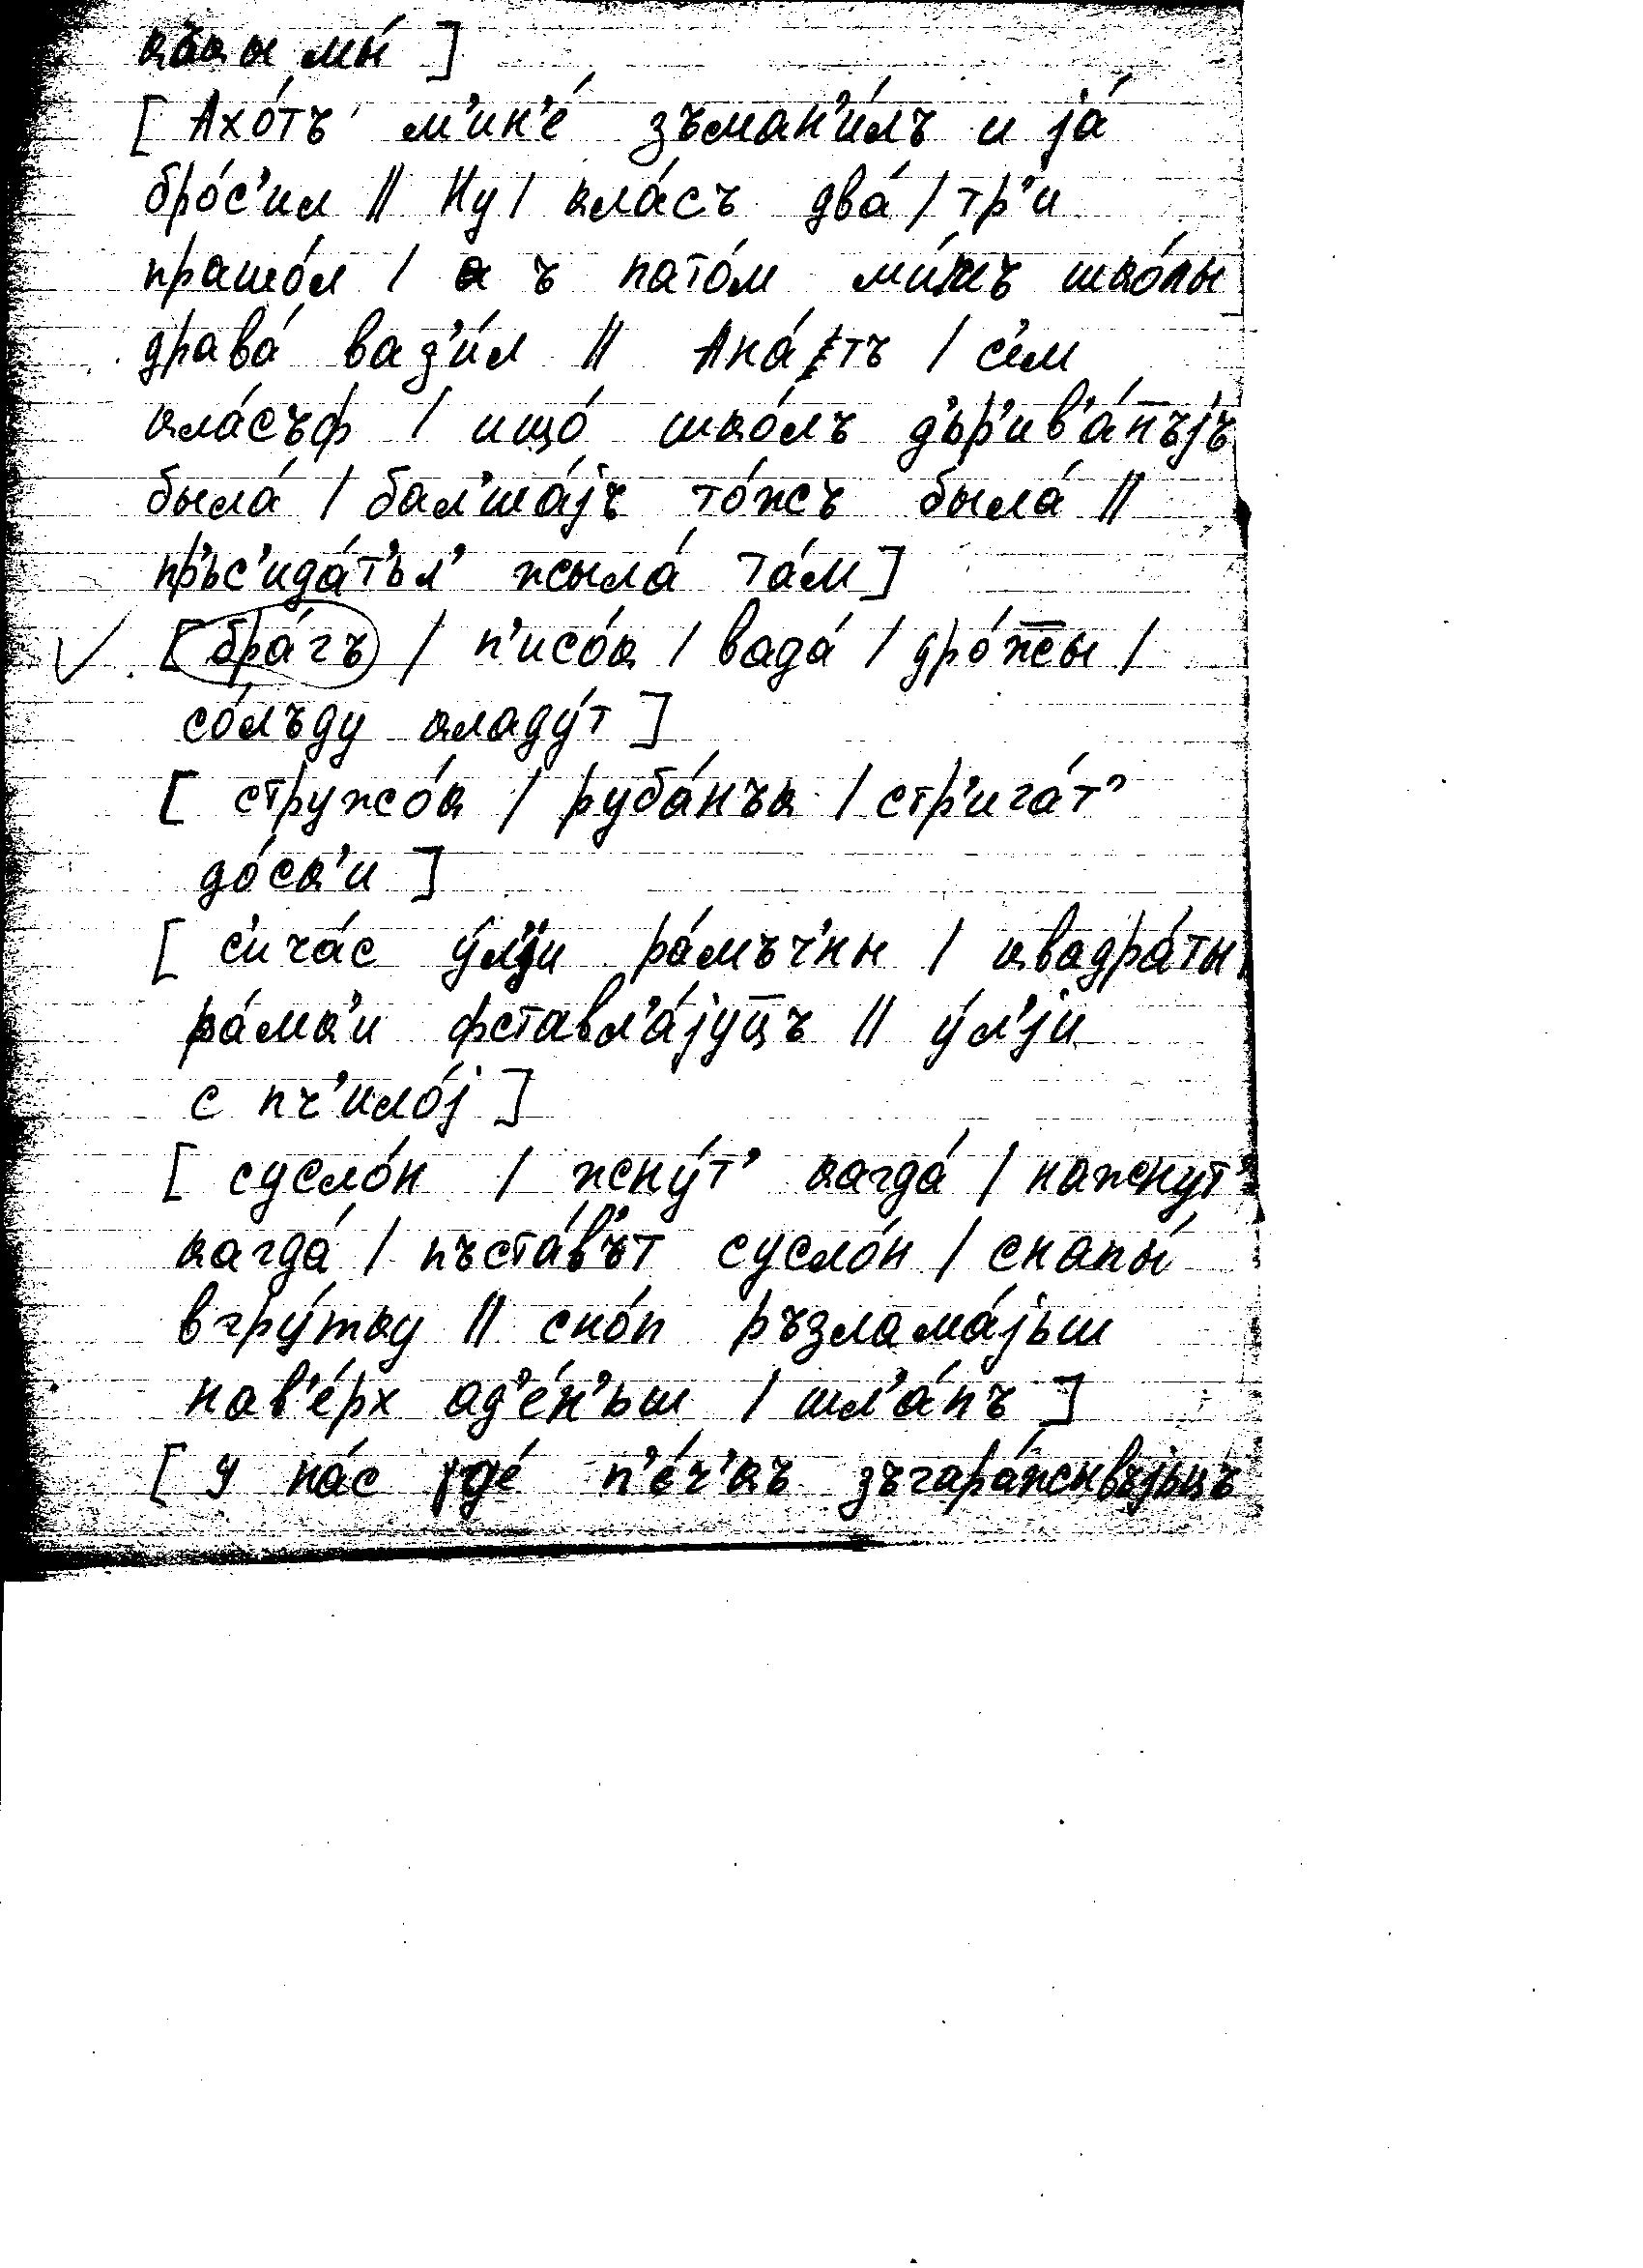 мы́ ]
[ Ахо́тъ м'ин'е́ зъман'и́лъ и jа́
бро́с'ил || Ну / кла́съ два́ / тр'и
прашо́л / а ъ пато́м ми́мъ шко́лы
драва́ ваз'и́л || Ана́ тъ / с'им
кла́съф / ищо́ шко́лъ д'ьр'ив'а́н̅ъjъ
была́ / бал'ша́jъ то́жъ была́ ||
пр'ьс'ида́т'ьл' жыла́ та́м ]
[ бра́гъ / п'исо́к / вада́ / дро́ж̅ы /
со́лъду кладу́т ]
[ стружо́к / руба́нък / стр'ига́т'
до́ск'и ]
[ с'ича́с у́л'jи ра́мъч'ны / квадра́ты
ра́мк'и фставл'а́jуц̅ъ || у́л'jи
с пч'ило́j ]
[ сусло́н / жну́т' кагда́ / нажнут'
кагда́ / пъста́в'ът сусло́н / снапы́
в гру́тку || сно́п ръзлама́jьш
нав'е́рх ад'е́н'ьш / шл'а́пъ ]
[ У на́с где́ п'е́ч'къ зъгара́жывъjьцъ